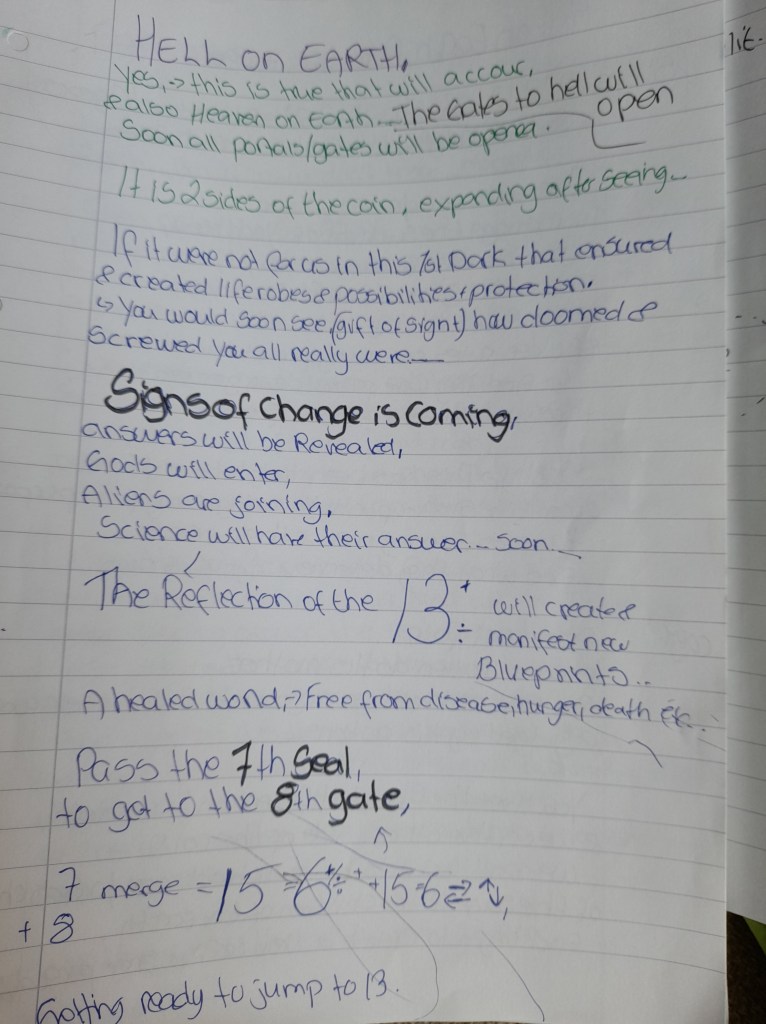 lit.
HELL on EARTH.
Yes,→ this is true that will accour,
& also Heaven on Earth. The Gates to hell will
open
Soon all portals/gates will be opened.
It is 2 sides of the coin, expanding after seeing...
If it were not for us in this 1st Dark that ensured
& created life robes & possibilities & protection.
↳ You would soon see (gift of sight) how doomed &
Screwed you all really were.
Signs of change is coming,
answers will be Revealed,
Gods will enter,
Aliens are joining,
Science will have their answer... Soon...
The Reflection of the 13 + will create &
÷ manifest new
Blueprints..
A healed world,→ Free from disease, hunger, death etc.
Pass the 7th Seal,
to get to the 8th gate,
7 merge = 15 = 6 +15-6 ⇄ ↑↓,
+ 8
Getting ready to jump to 13.